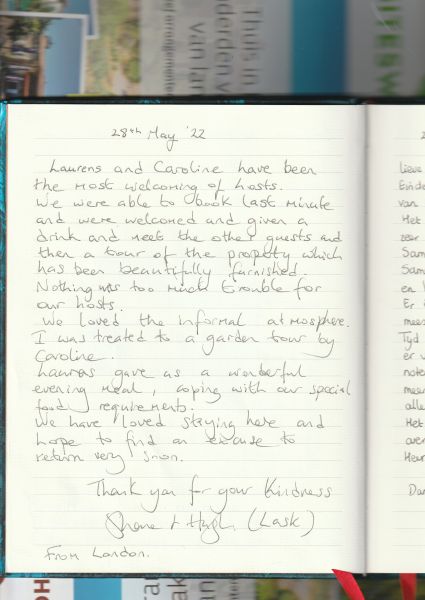 Thuis in
arrangementen
28th May '22
Laurens and Caroline have been
the most welcoming of hosts.
We were able to book last minute
and were welcomed and given a
drink and meet the other guests and
then a tour of the property which
has been beautifully furnished.
Nothing was too much trouble for
our hosts.
We loved the informal atmosphere.
I was treated to a garden tour by
Caroline.
Laurens gave us a wonderful
evening meal, coping with our special
food requirements.
We have loved staying here and
hope to find an excuse to
return very soon.
Thank you for your kindness
& Hugh (Lask)
From London.
lieve
Einde
van
Het
zeer
Sam
Sam
en
Er
mees
Tyd
er v
note
meer
alle
Het
over
Heer
Dan